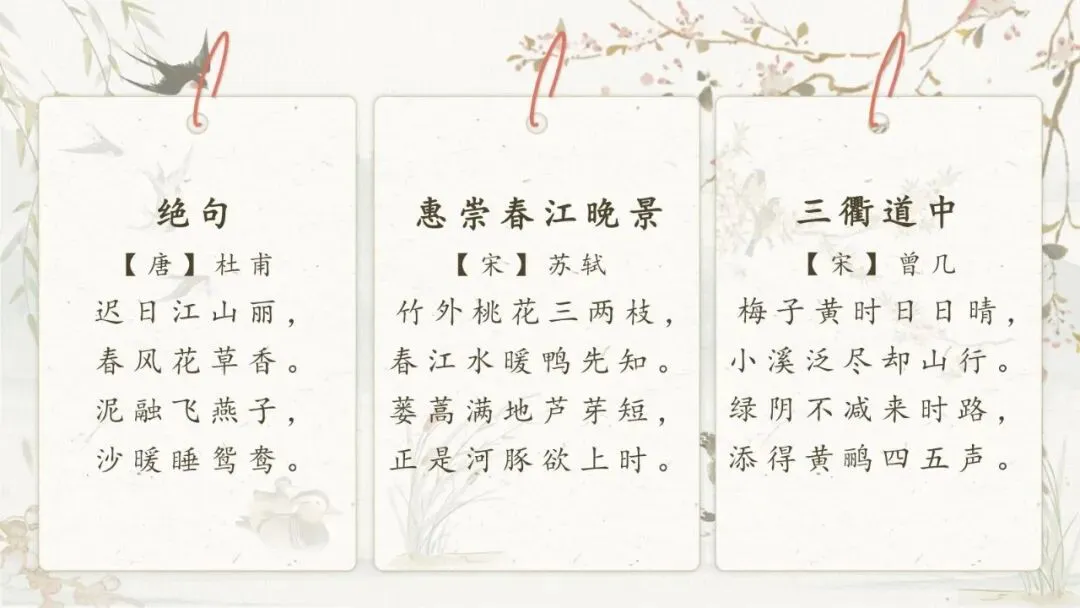 绝句
【唐】杜甫
迟日江山丽，
春风花草香。
泥融飞燕子，
沙暖睡鸳鸯。
惠崇春江晚景
【宋】苏轼
竹外桃花三两枝，
春江水暖鸭先知。
蒌蒿满地芦芽短，
正是河豚欲上时。
三衢道中
【宋】曾几
梅子黄时日日晴，
小溪泛尽却山行。
绿阴不减来时路，
添得黄鹂四五声。